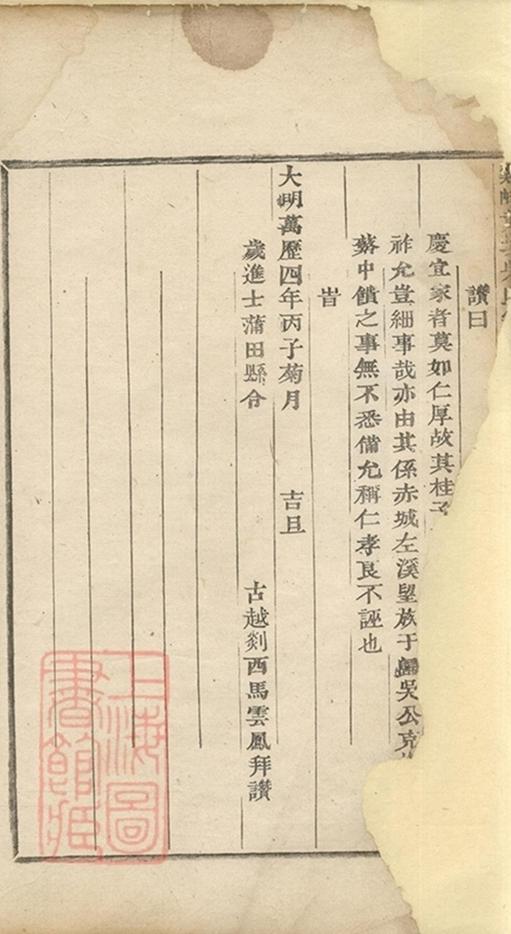 讚曰
慶宜家者莫如仁厚故其桂子
祚允豈細事哉亦由其係赤城左溪望族于歸吳公克
蘋中饋之事無不悉備允稱仁孝良不誣也
旹
大明萬歷四年丙子菊月 吉旦
歲進士蒲田縣令 古越剡西馬雲鳳拜讚
上海圖書館藏